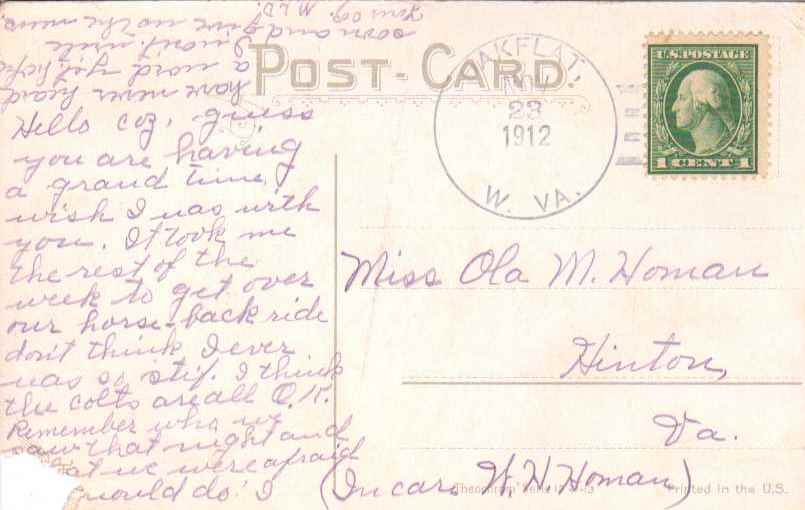 POST-CARD.
OAKFLAT,
23
1912
W. VA.
U.S. POSTAGE
1 CENT 1
Hello coz, guess
you are having
a grand time,
wish I was with
you. It took me
the rest of the
week to get over
our horse-back ride
don't think I ever
was so stif. I think
the colts are all O.K.
Remember who we
saw that night and
what we were afraid
would do. I
have never heard
a word yet
I want. write
soon and give me the news.
Yours Coz, M.L.D.
Miss Ola M. Homan
Hinton,
Va.
(In care W. H. Homan)
Printed in the U.S.